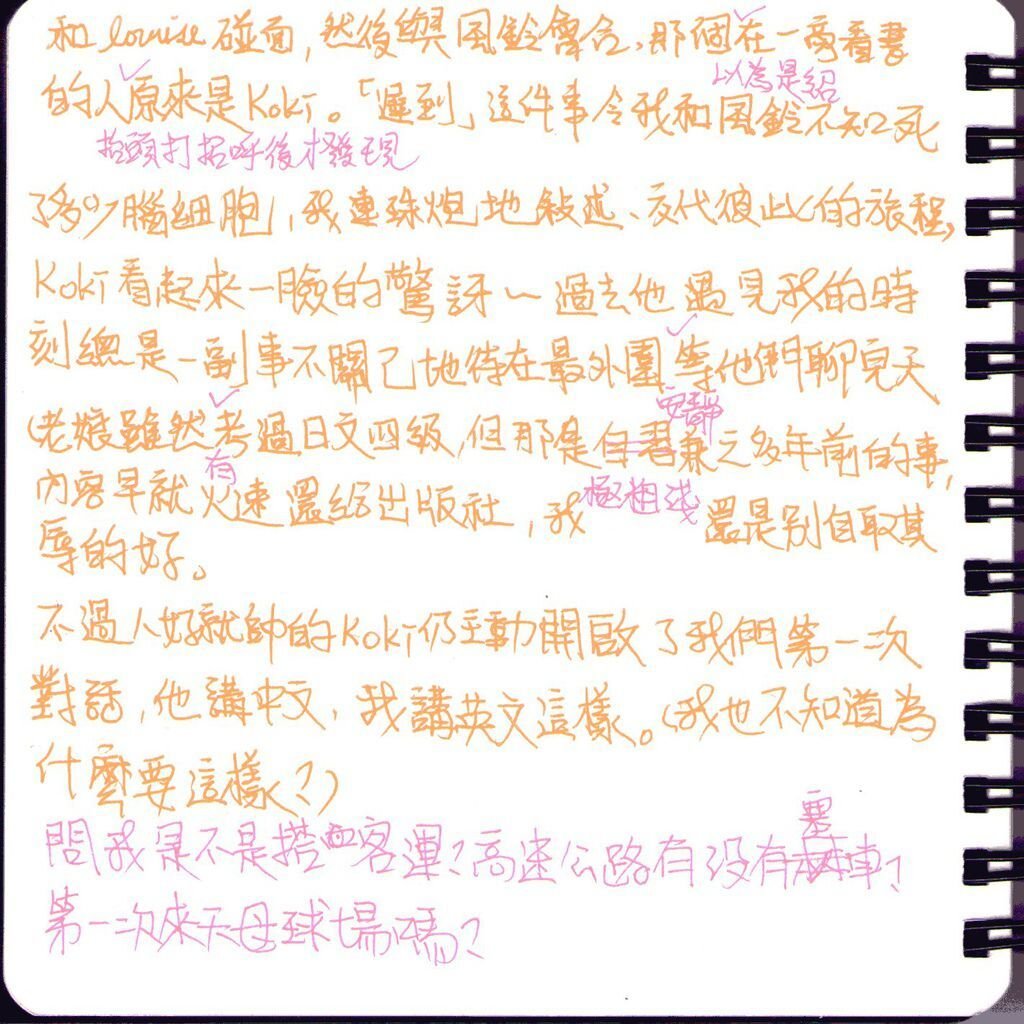 和louise碰面,然後與風鈴會合,那個在一旁看書
以為是紹
的人原來是Koki。「遲到」這件事令我和風鈴不知死
抬頭打招呼後才發現
了多少腦細胞,我連珠炮地敍述、交代彼此的旅程,
Koki看起來一臉的驚訝~過去他遇見我的時
刻總是一副事不關己地待在最外圍等他們聊完天
安靜
(老娘雖然考過日文四級,但那是 之多年前的事,
有 極粗淺
內容早就火速還給出版社,我還是別自取其
辱的好。
不過人好就帥的Koki仍主動開啟了我們第一次
對話,他講中文,我講英文這樣。(我也不知道為
什麼要這樣?)
塞
問我是不是搭 客運?高速公路有沒有車?
第一次來天母球場嗎?